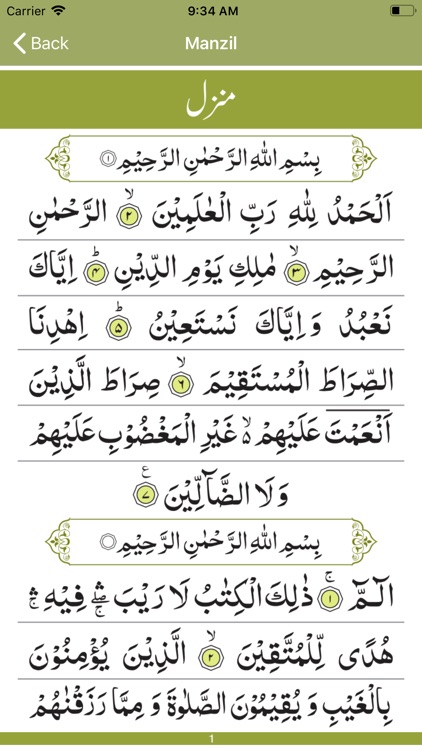 Carrier 9:34 AM
Back Manzil
منزل
بِسْمِ اللهِ الرَّحْمٰنِ الرَّحِيْمِ ۝۱
اَلْحَمْدُ لِلّٰهِ رَبِّ الْعٰلَمِيْنَ ۙ۝۲ الرَّحْمٰنِ
الرَّحِيْمِ ۙ۝۳ مٰلِكِ يَوْمِ الدِّيْنِ ؕ۝۴ اِيَّاكَ
نَعْبُدُ وَ اِيَّاكَ نَسْتَعِيْنُ ؕ۝۵ اِهْدِنَا
الصِّرَاطَ الْمُسْتَقِيْمَ ۙ۝۶ صِرَاطَ الَّذِيْنَ
اَنْعَمْتَ عَلَيْهِمْ ۙ۬ غَيْرِ الْمَغْضُوْبِ عَلَيْهِمْ
وَلَا الضَّآلِّيْنَ ۝۷ ع
بِسْمِ اللهِ الرَّحْمٰنِ الرَّحِيْمِ ۝
الٓمّٓ ۚ۝۱ ذٰلِكَ الْكِتٰبُ لَا رَيْبَ ۛۖ فِيْهِ ۛۚ
هُدًى لِّلْمُتَّقِيْنَ ۙ۝۲ الَّذِيْنَ يُؤْمِنُوْنَ
بِالْغَيْبِ وَ يُقِيْمُوْنَ الصَّلٰوةَ وَ مِمَّا رَزَقْنٰهُمْ
1